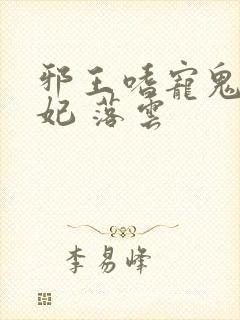 邪王嗜寵鬼
妃 落雲
李易峰